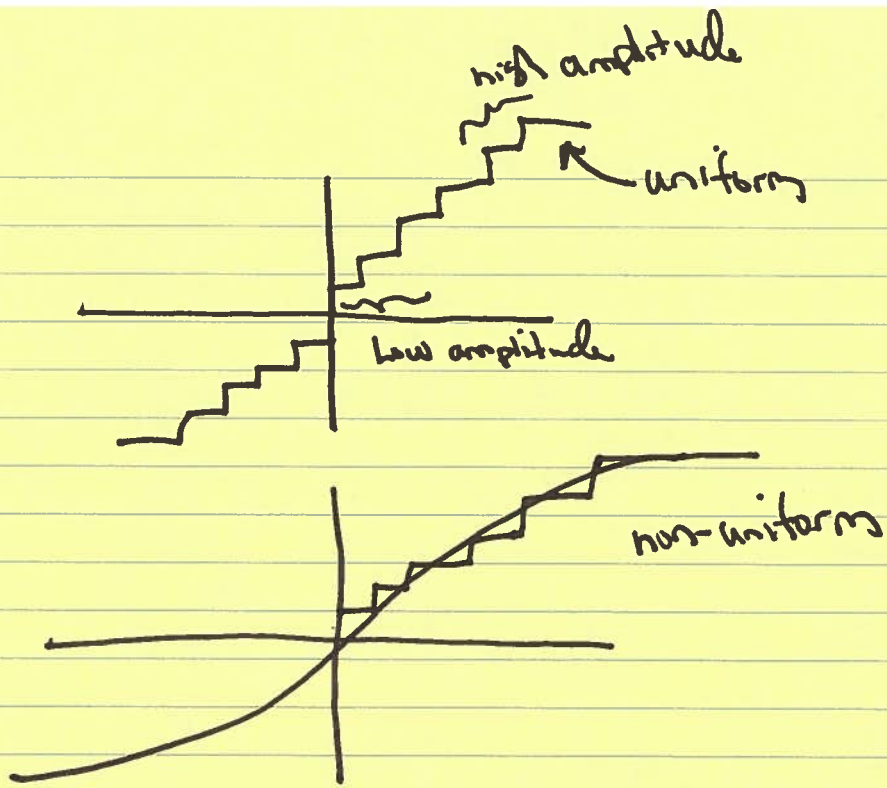 high amplitude
uniform
Low amplitude
non-uniform